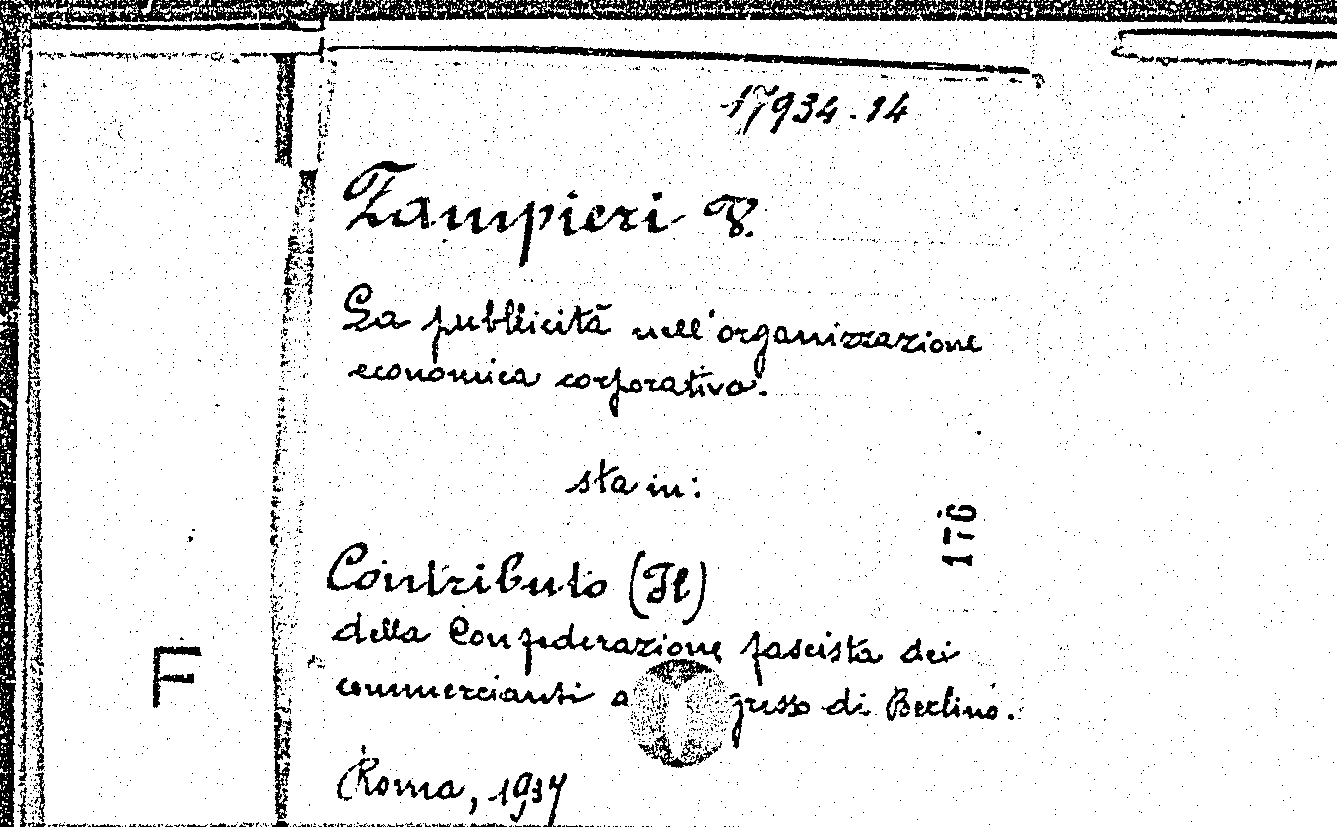 17934.14
Zampieri T.
La pubblicità nell'organizzazione
economica corporativa.
sta in:
176
Contributo (Il)
della Confederazione fascista dei
commercianti a gresso di Berlino.
F
Roma, 1937